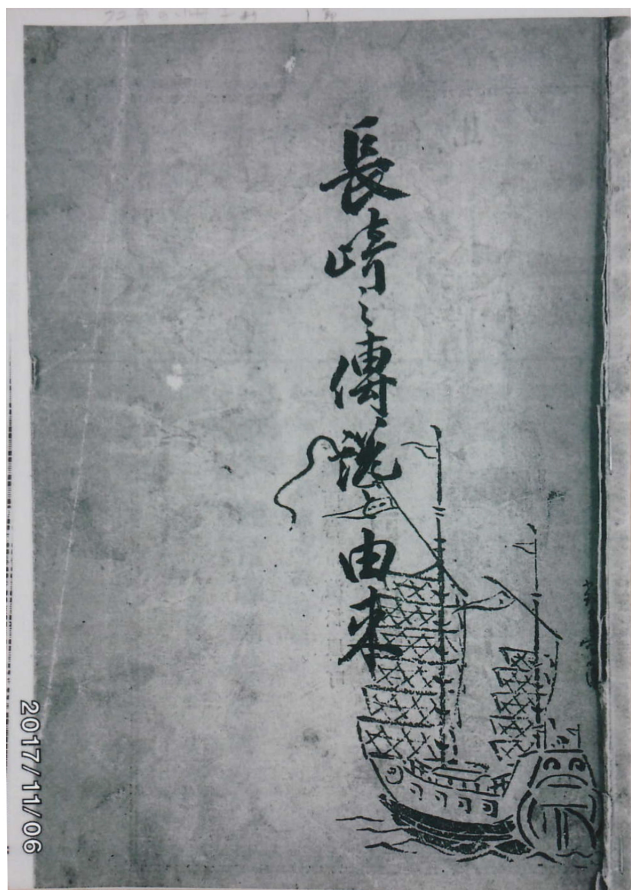 長崎之傳説と由来
2017/11/06